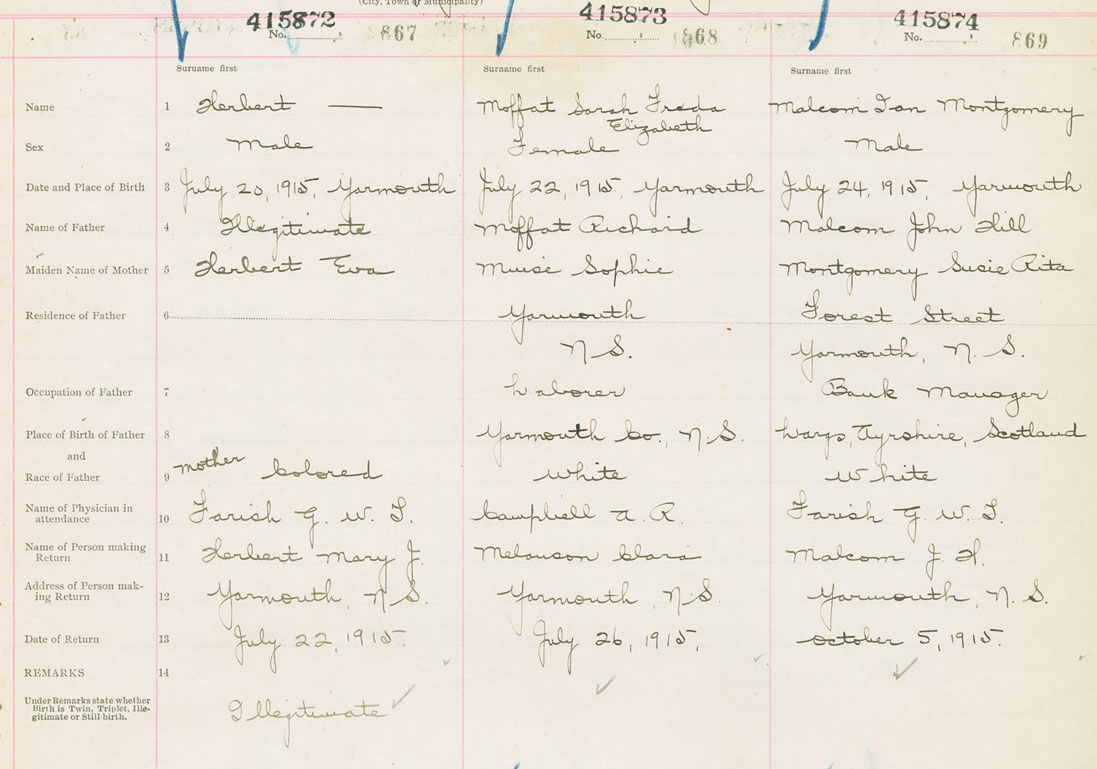 (City, Town or Municipality)
415872 415873 415874
No. 867 No. 868 No. 869
Surname first Surname first Surname first
Name 1 Herbert — Moffat Sarah Freda Malcom Ian Montgomery
Elizabeth
Sex 2 Male Female Male
Date and Place of Birth 3 July 20, 1915, Yarmouth July 22, 1915, Yarmouth July 24, 1915, Yarmouth
Name of Father 4 Illegitimate Moffat Richard Malcom John Hill
Maiden Name of Mother 5 Herbert Eva Muise Sophie Montgomery Susie Rita
Residence of Father 6 Yarmouth Forest Street
N.S. Yarmouth, N.S.
Occupation of Father 7 Laborer Bank Manager
Place of Birth of Father 8 Yarmouth Co., N.S. Largs, Ayrshire, Scotland
and
Race of Father 9 mother Colored White White
Name of Physician in
attendance 10 Farish G. W. T. Campbell A. R. Farish G. W. T.
Name of Person making
Return 11 Herbert Mary J. Melanson Clara Malcom J. H.
Address of Person mak-
ing Return 12 Yarmouth, N.S. Yarmouth, N.S. Yarmouth, N.S.
Date of Return 13 July 22, 1915. July 26, 1915. October 5, 1915.
REMARKS 14
Under Remarks state whether
Birth is Twin, Triplet, Ille-
gitimate or Still birth.
Illegitimate